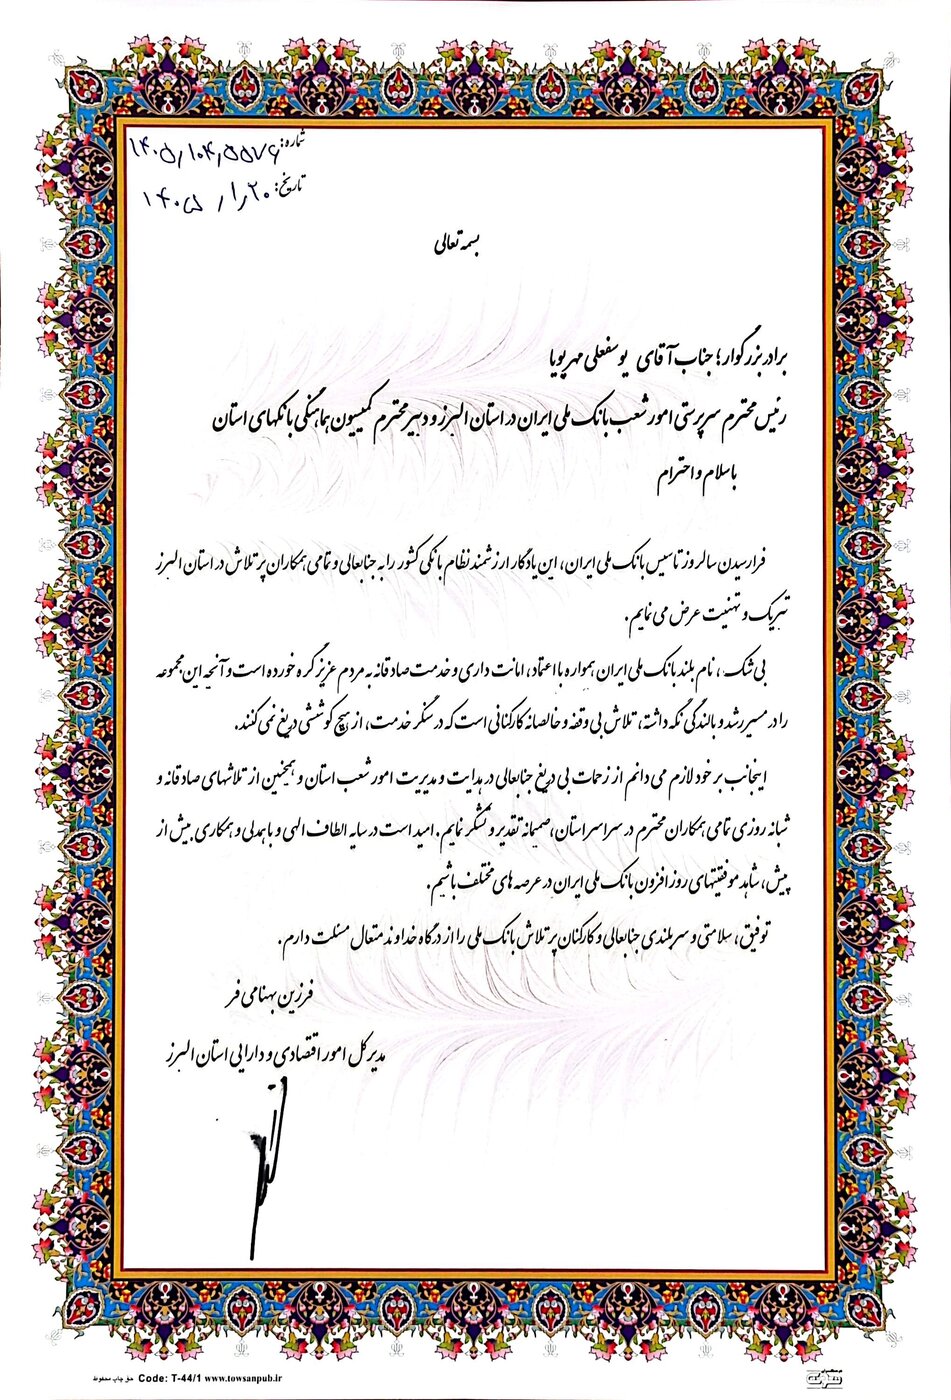 شماره: ۱۴۰۵/۱۰۴/۵۵۷۶
تاریخ: ۱۴۰۵/۱/۲۰
بسمه تعالی
برادر بزرگوار؛ جناب آقای یوسفعلی مهرپویا
رئیس محترم سرپرستی امور شعب بانک ملی ایران در استان البرز و دبیر محترم کمیسیون هماهنگی بانکهای استان
با سلام و احترام
فرارسیدن سالروز تاسیس بانک ملی ایران، این یادگار ارزشمند نظام بانکی کشور را به جنابعالی و تمامی همکاران پر تلاش در استان البرز
تبریک و تهنیت عرض می نمایم.
بی شک، نام بلند بانک ملی ایران همواره با اعتماد، امانت داری و خدمت صادقانه به مردم عزیز گره خورده است و آنچه این مجموعه
را در مسیر رشد و بالندگی نگه داشته، تلاش بی وقفه و خالصانه کارکنانی است که در سنگر خدمت، از هیچ کوششی دریغ نمی کنند.
اینجانب بر خود لازم می دانم از زحمات بی دریغ جنابعالی در هدایت و مدیریت امور شعب استان و همچنین از تلاشهای صادقانه و
شبانه روزی تمامی همکاران محترم در سراسر استان، صمیمانه تقدیر و تشکر نمایم. امید است در سایه الطاف الهی و با همدلی و همکاری بیش از
پیش، شاهد موفقیتهای روزافزون بانک ملی ایران در عرصه های مختلف باشیم.
توفیق، سلامتی و سربلندی جنابعالی و کارکنان پر تلاش بانک ملی را از درگاه خداوند متعال مسئلت دارم.
فرزین بهنامی فر
مدیر کل امور اقتصادی و دارایی استان البرز
حق چاپ محفوظ Code: T-44/1 www.towsanpub.ir